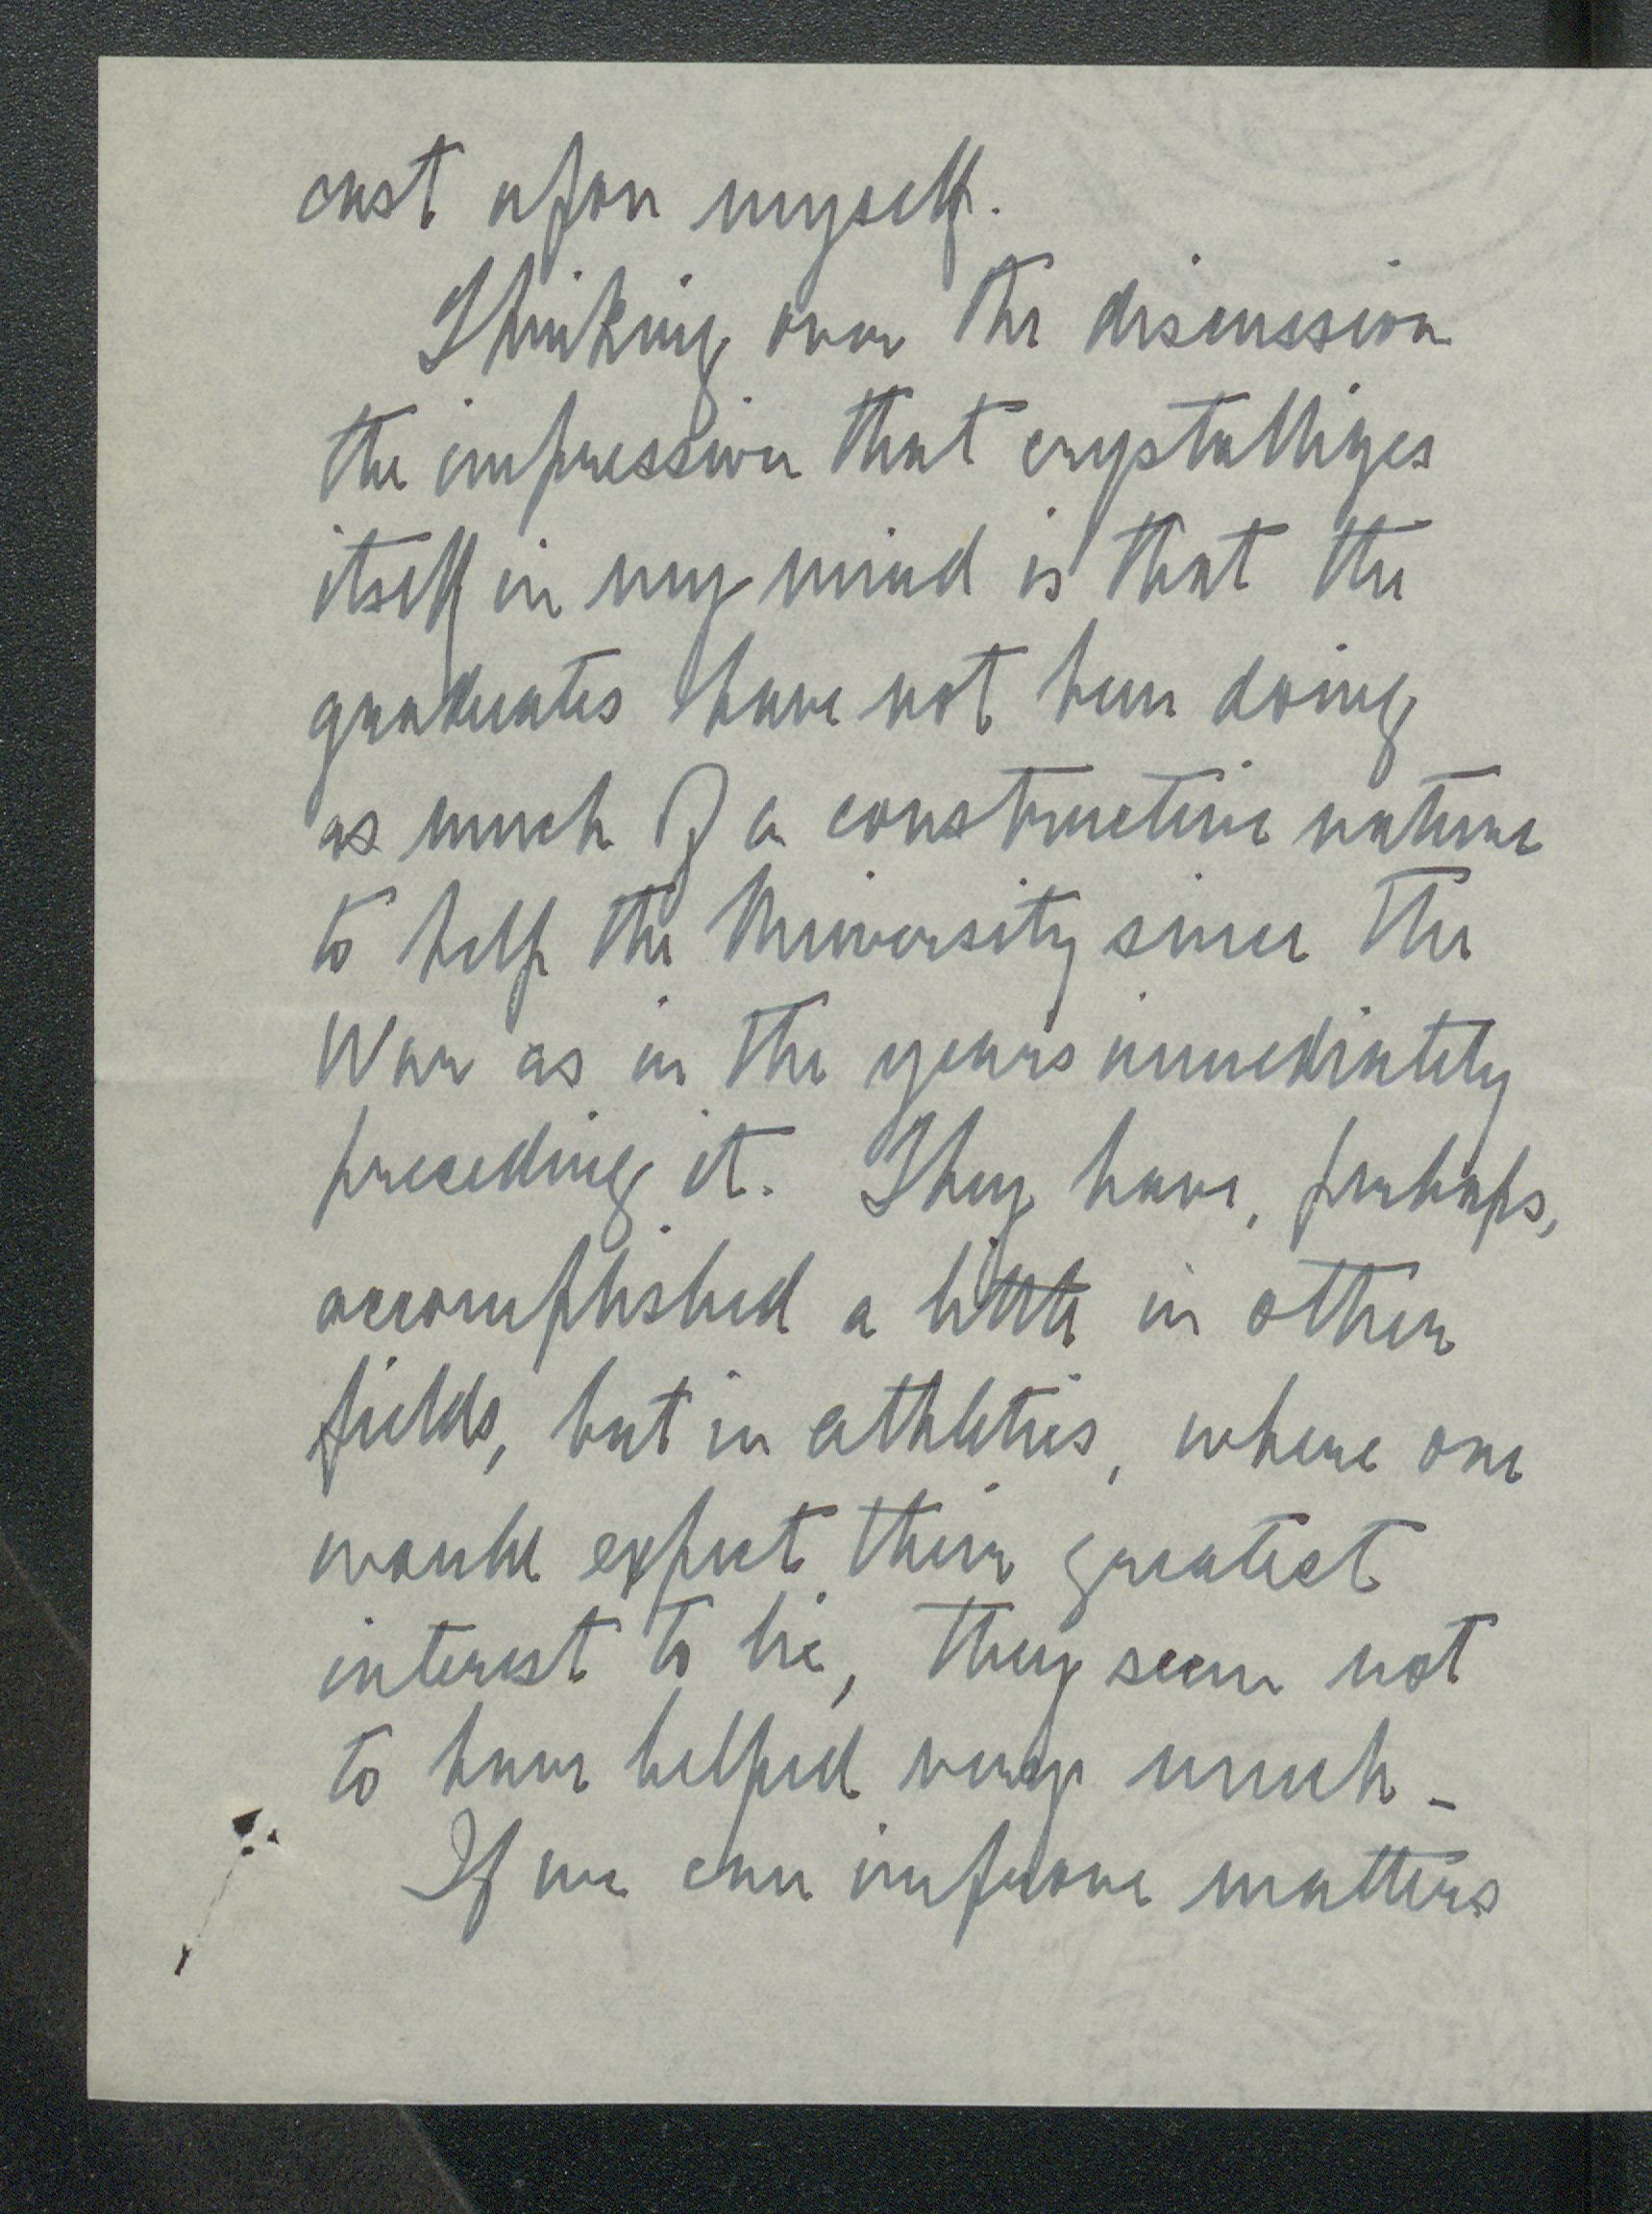 cast upon myself.
Thinking over the discussion
the impression that crystallizes
itself in my mind is that the
graduates have not been doing
as much of a constructive nature
to help the University since the
War as in the years immediately
preceding it. They have, perhaps,
accomplished a little in other
fields, but in athletics, where one
would expect their greatest
interest to lie, they seem not
to have helped very much -
If we can improve matters